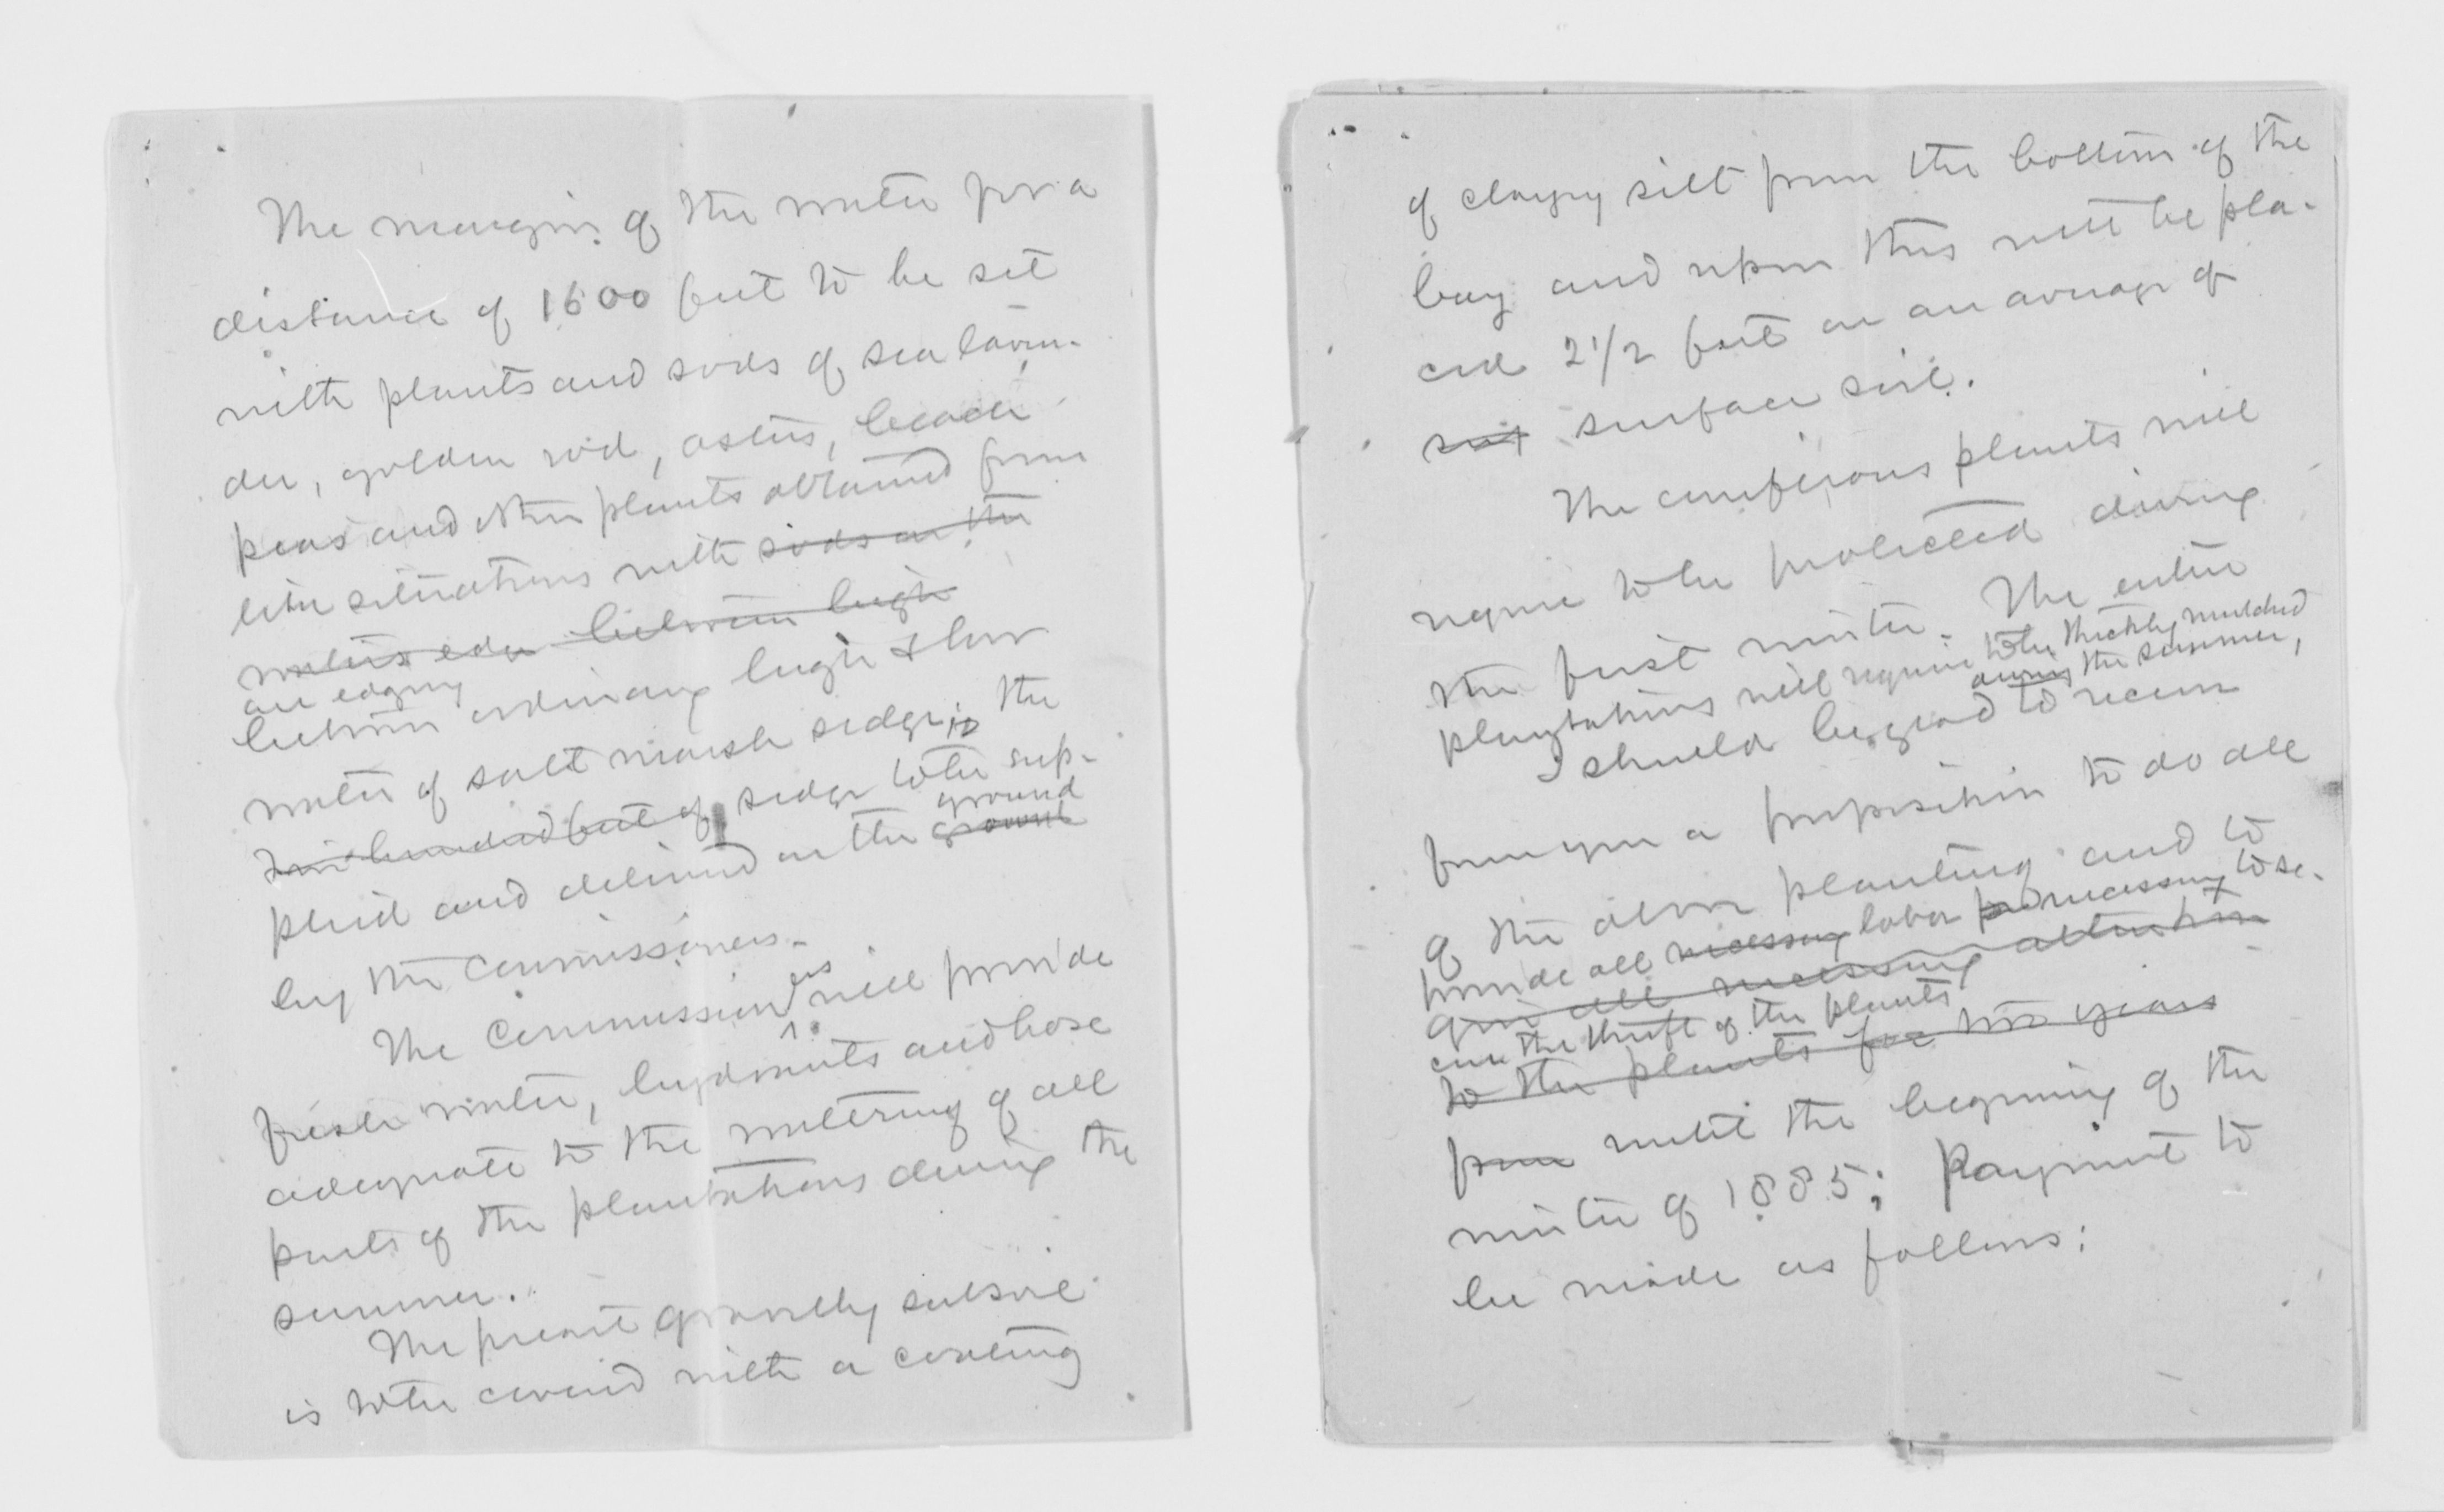 The margin of the water for a
distance of 1600 feet to be set
with plants and sods of sea laven-
der, golden rod, asters, beach
peas and other plants obtained from
like situations with sods on the
waters edge between high
an edging
between ordinary high & low
water of salt marsh sedge; the
Two hundred feet of sedge to be sup-
ground
plied and delivered on the ground
by the Commissioners.
The Commissioners will provide
fresh water, hydrants and hose
adequate to the watering of all
parts of the plantations during the
summer.
The present gravelly subsoil
is to be covered with a coating
of clayey silt from the bottom of the
bay and upon this will be pla-
ced 2 1/2 feet on an average of
soil surface soil.
The coniferous plants will
require to be protected during
the first winter. The entire
plantations will require to be thickly mulched
during the summer,
I should be glad to receive
from you a proposition to do all
of the above planting and to
provide all necessary labor necessary to se-
give all necessary attention
cure the thrift of the plants
to the plants for two years
from until the beginning of the
winter of 1885; Payment to
be made as follows: